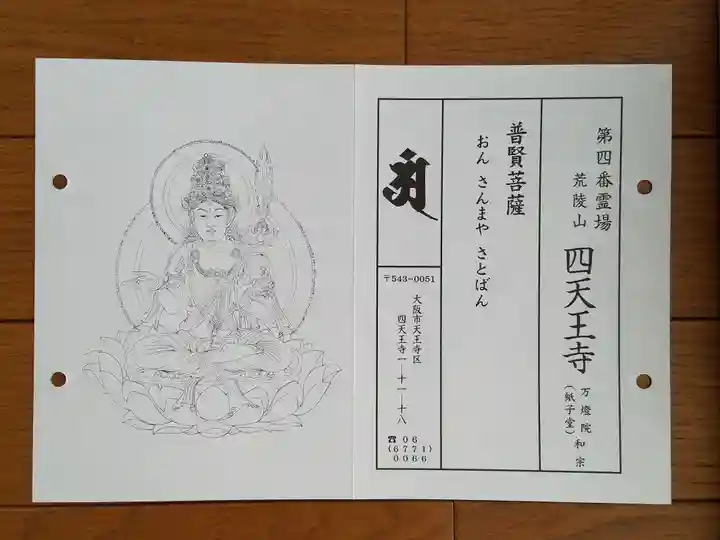 第四番霊場
荒陵山 四天王寺 万燈院 和宗
(紙子堂)
普賢菩薩
おん さんまや さとばん
〒543-0051
大阪市天王寺区
四天王寺一―十一―十八
☎06
(6771)
0066